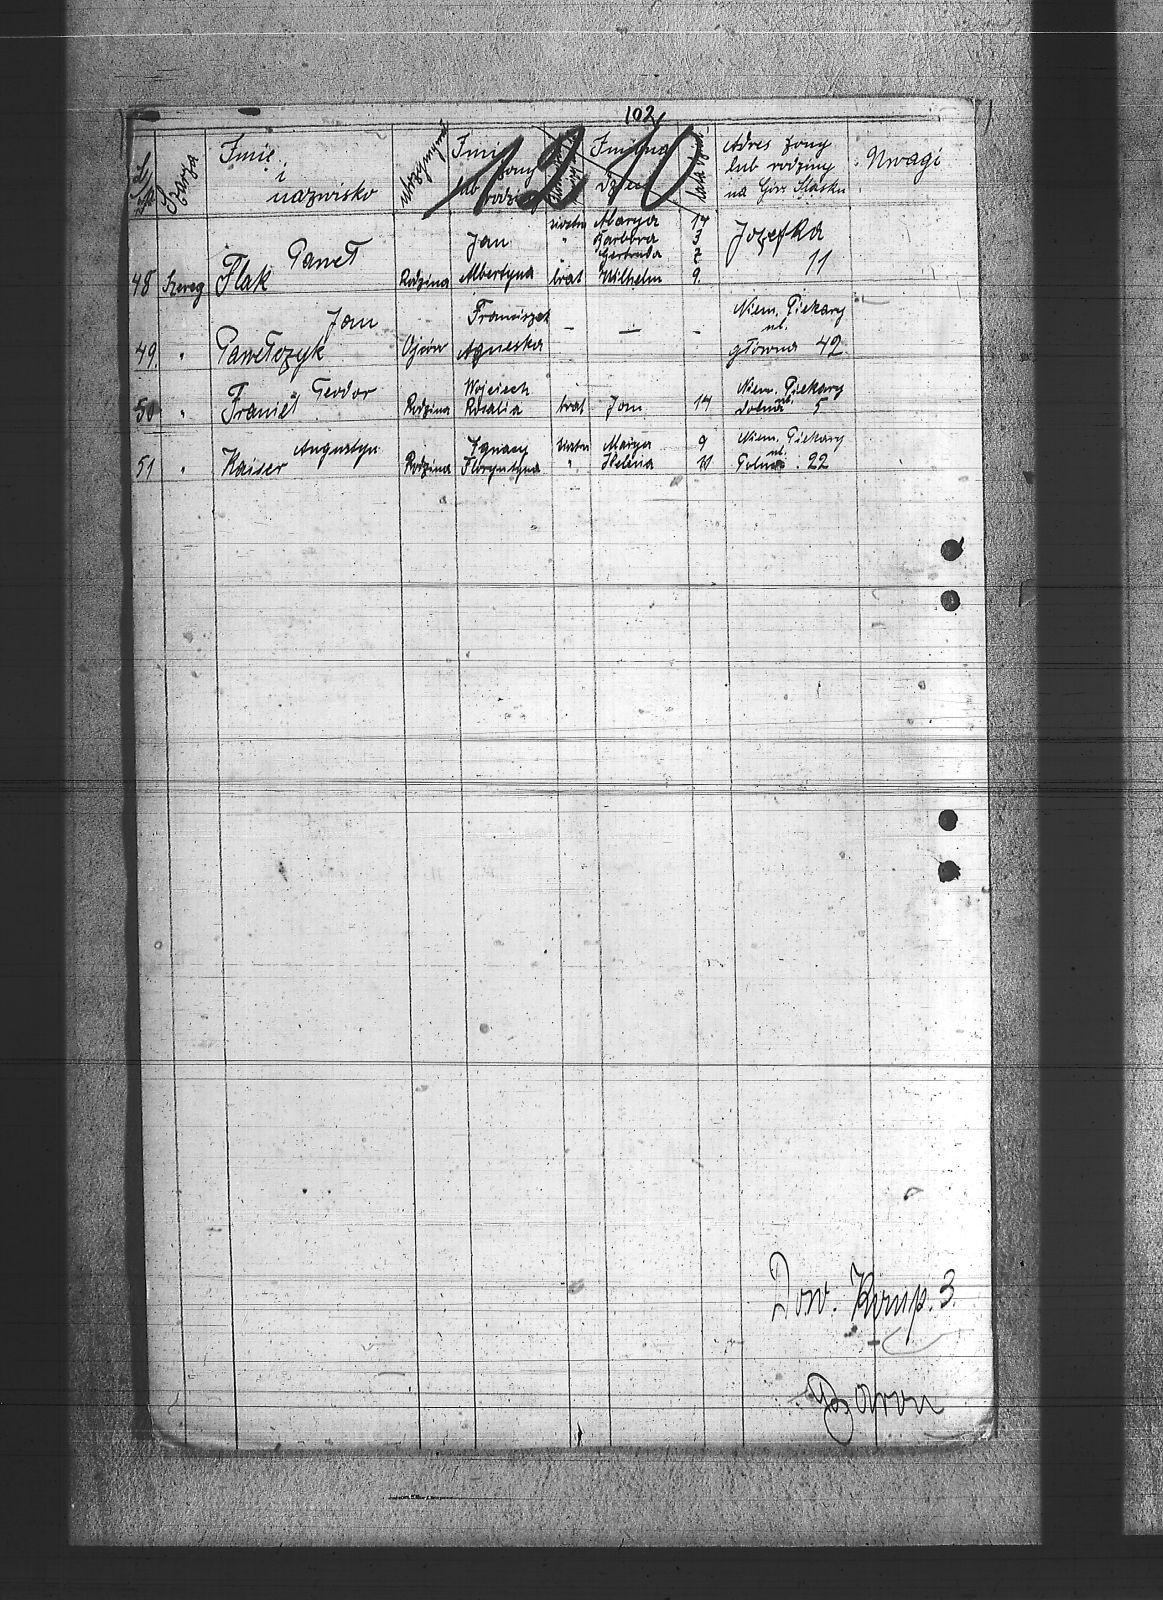 102
1210
L. Szarża Imię i nazwisko Imię żony lub rodziny Imiona dzieci Adres żony lub rodziny na Gór. Śląsku Uwagi
siostra Marya 14
Jan " Barbara 3 Jozefka
Paweł Gertruda 7 11
48 Szereg Flak Rodzina Albertyna brat Wilhelm 9
Jan Franciszek — — - Niem. Piekary ul.
49. " Pawełczyk Ojców Agneska główna 42
Teodor Wojciech Niem. Piekary
50 " Franiel Rodzina Rosalia brat Jan 14 ul. 5
Augustyn Ignacy siostra Marya 9 Niem. Piekary ul.
51 " Kaiser Rodzina Floryntyna " Helena 11 Polna 22
Dow. Komp. 3.
Baron